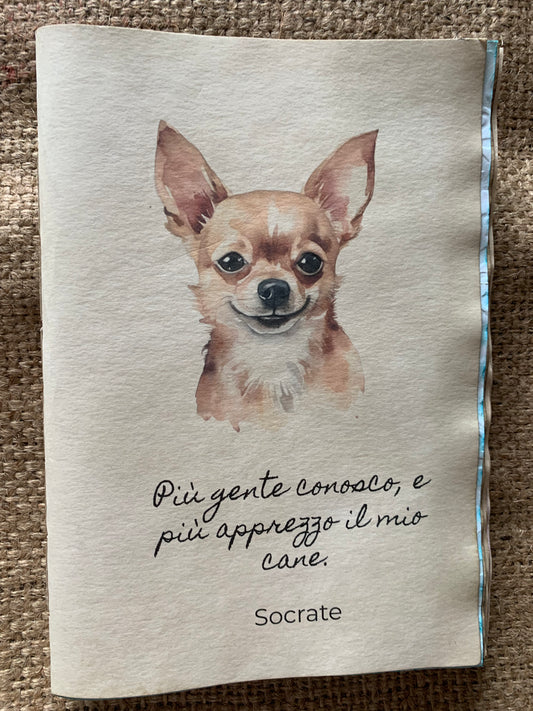 Più gente conosco, e
più apprezzo il mio
cane.
Socrate